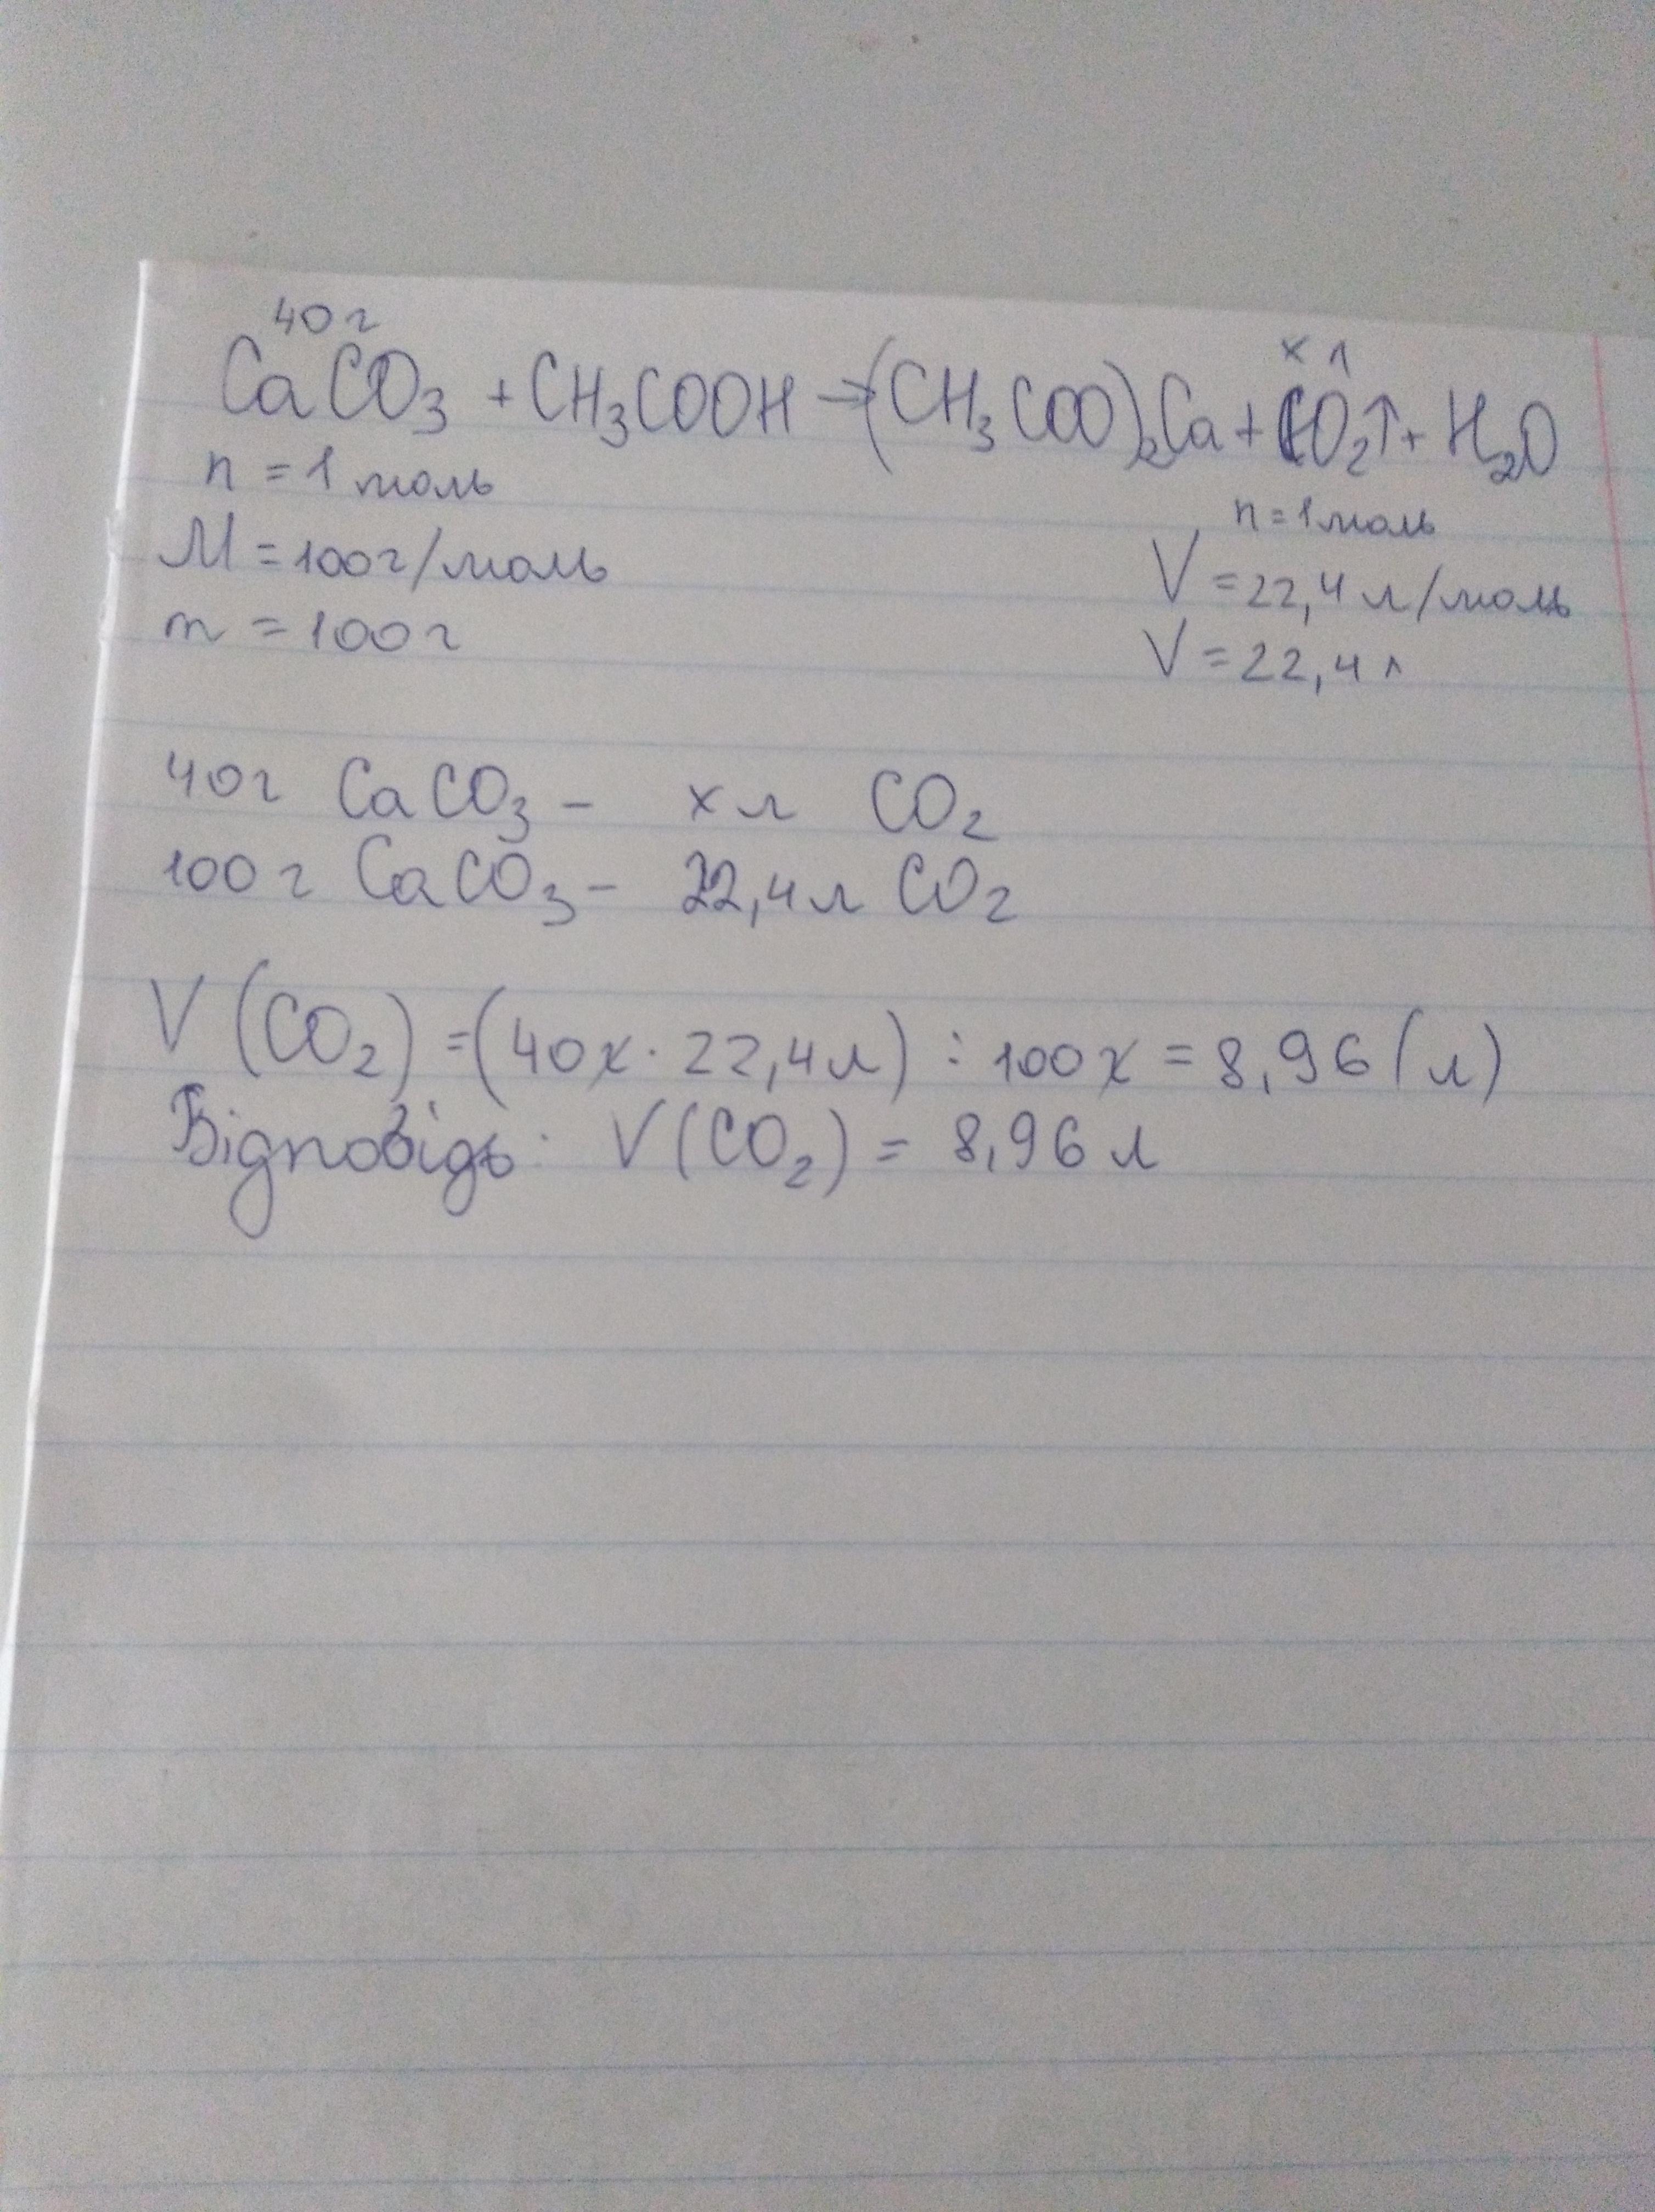 40 г
CaCO3 + CH3COOH → (CH3COO)2Ca + CO2↑ + H2O
x л
n = 1 моль
n = 1 моль
M = 100 г/моль
V = 22,4 л/моль
m = 100 г
V = 22,4 л
40 г CaCO3 – x л CO2
100 г CaCO3 – 22,4 л CO2
V (CO2) = (40 г · 22,4 л) : 100 г = 8,96 (л)
Відповідь: V(CO2) = 8,96 л